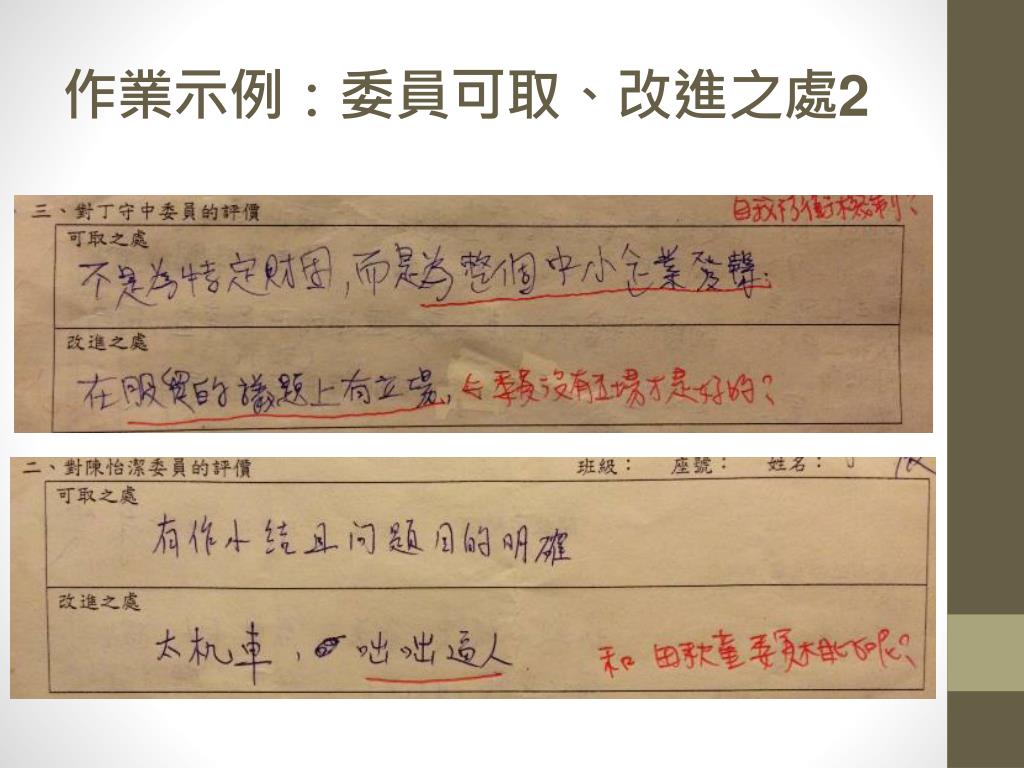 作業示例：委員可取、改進之處2
三、對丁守中委員的評價
自我約衝機制？
可取之處
不是為特定財團，而是為整個中小企業發聲。
改進之處
在服貿的議題上有立場，←委員沒有立場才是好的？
二、對陳怡潔委員的評價 班級： 座號： 姓名：
可取之處
有作小結且问題目的明確
改進之處
太机車，咄咄逼人
和田秋堇委員相比如呢？